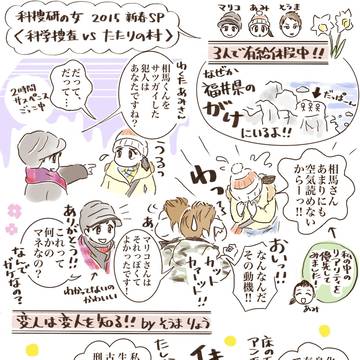 科捜研の女 2015 新春SP
〈科学捜査 vs たたりの村〉
マリコ
あみ
そうま
3人で有給休暇中!!
なぜか
福井県の
がけ
にいるよ!!
だっぱーん
わくた あみさん
相馬くんを
サツガイした
犯人は
あなたですね?
2時間
サスペンス
ごっこ中
だって…
だって…
うるっ
相馬さん
あまりにも
空気読めない
からーっ!!
わっ
私の中の
リアリティを
優先して
みました!
あみ
おい!!
なんなんだ
その動機!!
カマーット!!
マリコさんは
それっぽくて
よかったです!
ありがとう!!
これって
何かの
マネなの?
わかってないの
かわいい
なんで
がけなの?
変人は変人を知る!! by そうま りょう